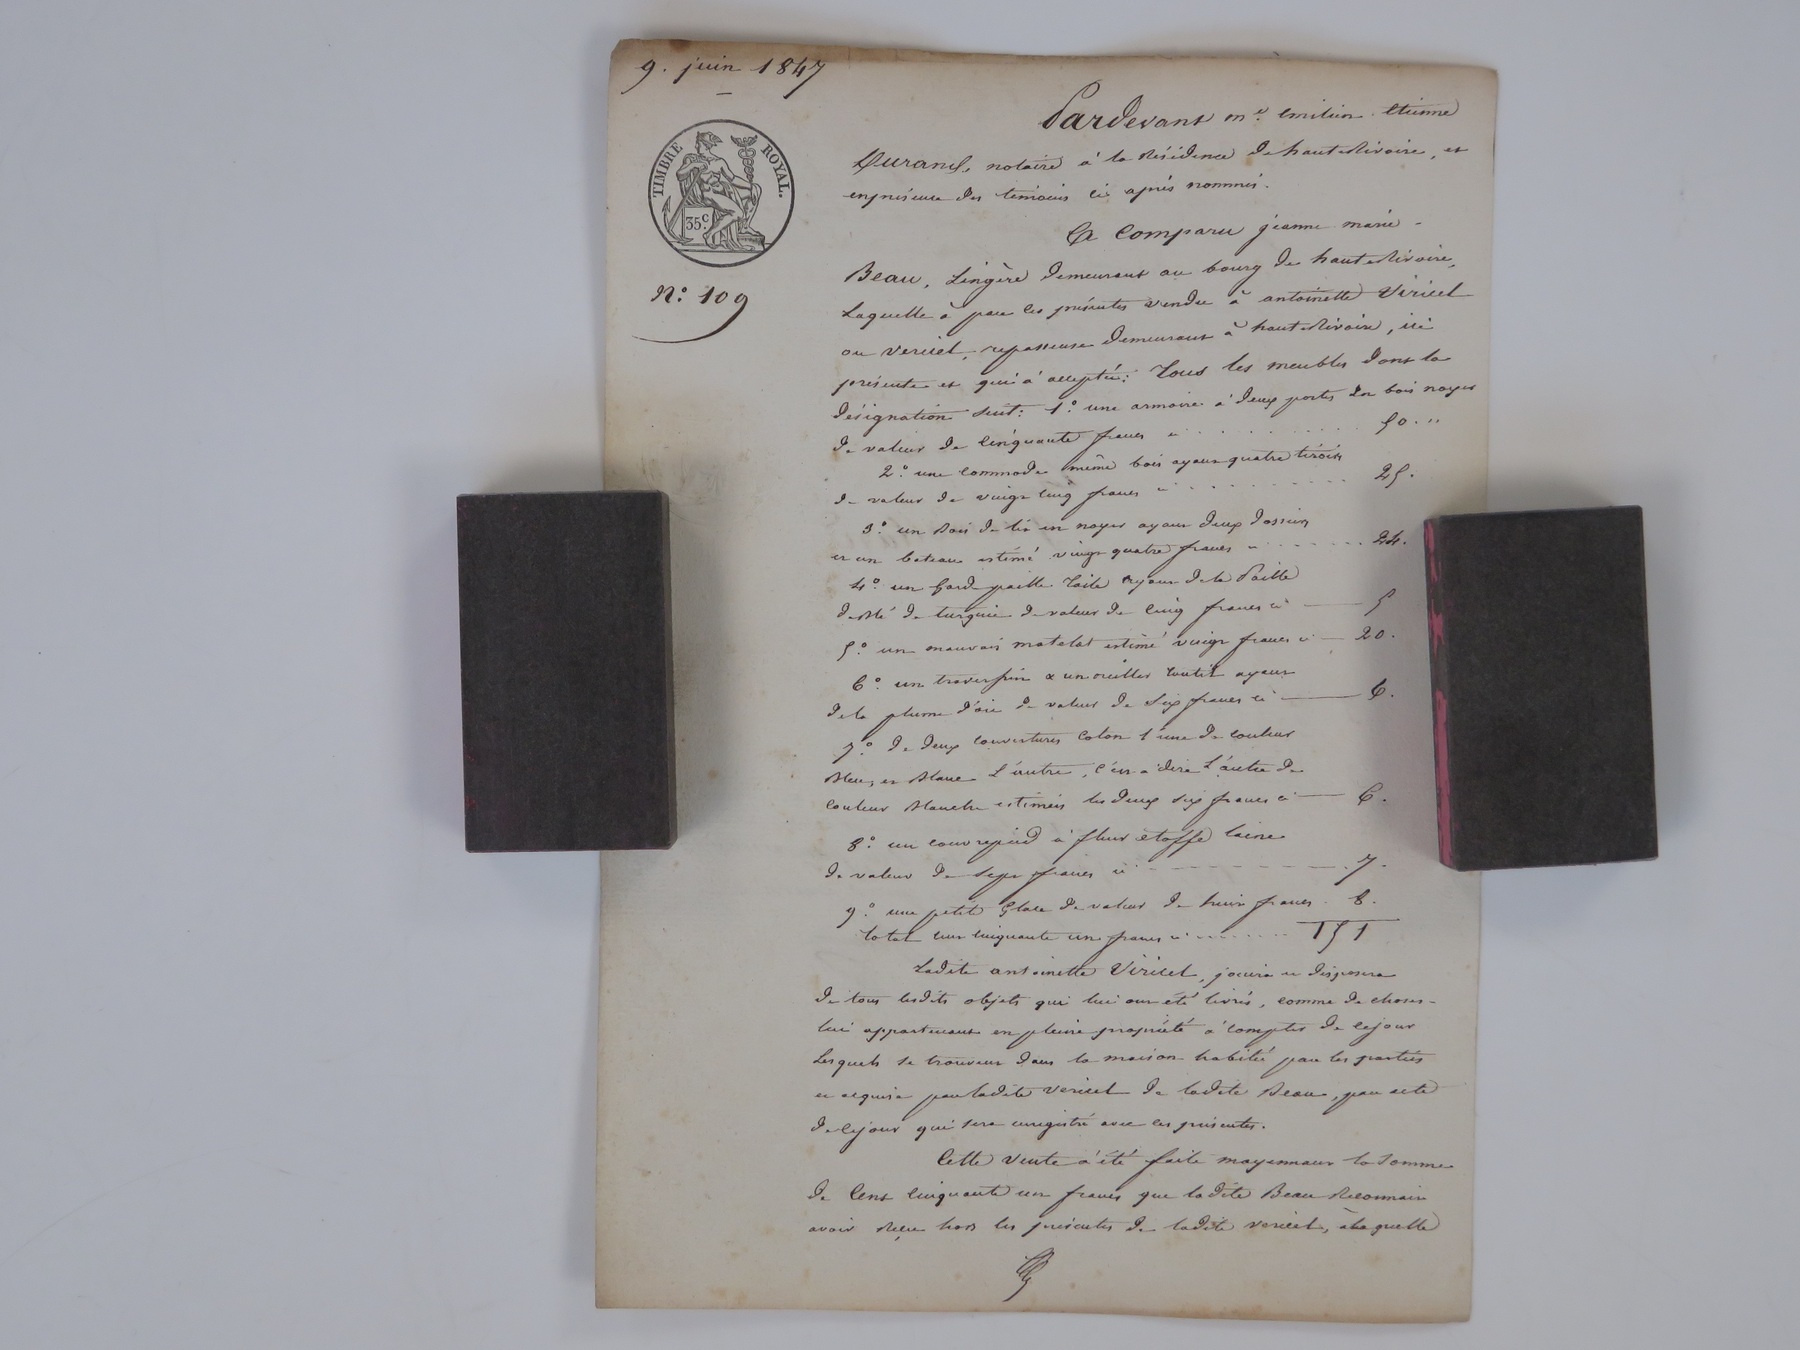 9. juin 1847
TIMBRE ROYAL.
35 c.
N.º 109
Pardevant me. emilien etienne
Durand, notaire à la Résidence de hauteRivoire, et
enprésence des témoins ci après nommés.
A Comparu jeanne marie -
Beau, Lingère demeurant au bourg de hauteRivoire,
Laquelle à par ces présentes vendu à antoinette Viricel
ou vericel, repasseuse demeurant à hauteRivoire, ici
présente et qui à acceptée: Tous les meubles dont la
désignation suit: 1.º une armoire à deux portes en bois noyer
de valeur de cinquante francs ci . . . . . . . . . . 50. "
2.º une commode même bois ayant quatre tiroirs
de valeur de vingt cinq francs ci . . . . . . . . . . 25.
3.º un Bois de lit en noyer ayant deux dossiers
et un bateau estimé vingt quatre francs ci . . . . . . 24.
4.º un Gard paille toile ayant de la Paille
de Blé de turquie de valeur de cinq francs ci —— 5
5.º un mauvais matelat estimé vingt francs ci — 20.
6.º un traversin & un oreiller Coutil ayant
dela plume d'oie de valeur de Six francs ci —— 6.
7.º de deux couvertures coton l'une de couleur
Bleu, et Blanc L'autre, C'est à dire L'autre de
couleur Blanche estimés les deux six francs ci — 6.
8.º un couvrepied à fleur étoffe laine
de valeur de Sept francs ci - - - - - - - 7.
9.º une petit Glace de valeur de huit francs. 8.
total cent cinquante un francs ci . . . . . . . . 151
Ladite antoinette Viricel, jouira et disposera
de tous lesdits objets qui lui ont été livrés, comme de choses -
lui appartenant en pleine propriété à compter de cejour
Lesquels se trouvent dans la maison habitée par les parties
et acquise par ladite vericel de ladite Beau, par acte
de cejour qui sera enregistré avec ces présentes.
Cette vente à été faite moyennant la Somme
de Cent Cinquante un francs que ladite Beau Reconnait
avoir Reçu hors les présentes de ladite vericel, à laquelle